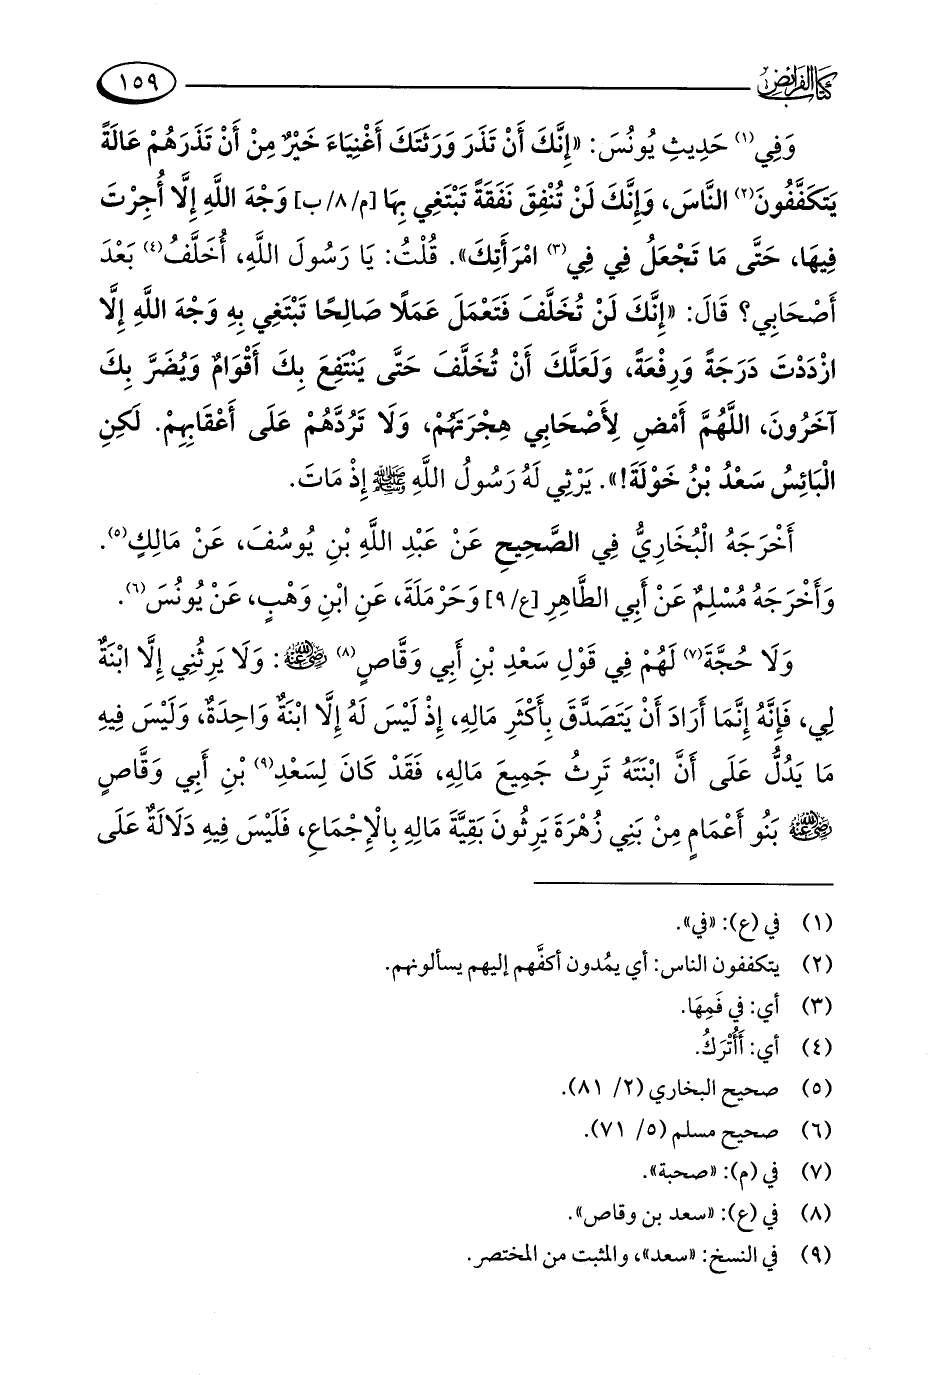 كتاب الفرائض
١٥٩
وَفِي(١) حَدِيثِ يُونُسَ: «إِنَّكَ أَنْ تَذَرَ وَرَثَتَكَ أَغْنِيَاءَ خَيْرٌ مِنْ أَنْ تَذَرَهُمْ عَالَةً
يَتَكَفَّفُونَ(٢) النَّاسَ، وَإِنَّكَ لَنْ تُنْفِقَ نَفَقَةً تَبْتَغِي بِهَا [م/٨/ب] وَجْهَ اللَّهِ إِلَّا أُجِرْتَ
فِيهَا، حَتَّى مَا تَجْعَلُ فِي فِي(٣) امْرَأَتِكَ». قُلْتُ: يَا رَسُولَ اللَّهِ، أُخَلَّفُ(٤) بَعْدَ
أَصْحَابِي؟ قَالَ: «إِنَّكَ لَنْ تُخَلَّفَ فَتَعْمَلَ عَمَلًا صَالِحًا تَبْتَغِي بِهِ وَجْهَ اللَّهِ إِلَّا
ازْدَدْتَ دَرَجَةً وَرِفْعَةً، وَلَعَلَّكَ أَنْ تُخَلَّفَ حَتَّى يَنْتَفِعَ بِكَ أَقْوَامٌ وَيُضَرَّ بِكَ
آخَرُونَ، اللَّهُمَّ أَمْضِ لِأَصْحَابِي هِجْرَتَهُمْ، وَلَا تَرُدَّهُمْ عَلَى أَعْقَابِهِمْ. لَكِنِ
الْبَائِسُ سَعْدُ بْنُ خَوْلَةَ!». يَرْثِي لَهُ رَسُولُ اللَّهِ ﷺ إِذْ مَاتَ.
أَخْرَجَهُ الْبُخَارِيُّ فِي الصَّحِيحِ عَنْ عَبْدِ اللَّهِ بْنِ يُوسُفَ، عَنْ مَالِكٍ(٥).
وَأَخْرَجَهُ مُسْلِمٌ عَنْ أَبِي الطَّاهِرِ [ع/٩] وَحَرْمَلَةَ، عَنِ ابْنِ وَهْبٍ، عَنْ يُونُسَ(٦).
وَلَا حُجَّةَ(٧) لَهُمْ فِي قَوْلِ سَعْدِ بْنِ أَبِي وَقَّاصٍ(٨) رضي الله عنه: وَلَا يَرِثُنِي إِلَّا ابْنَةٌ
لِي، فَإِنَّهُ إِنَّمَا أَرَادَ أَنْ يَتَصَدَّقَ بِأَكْثَرِ مَالِهِ، إِذْ لَيْسَ لَهُ إِلَّا ابْنَةٌ وَاحِدَةٌ، وَلَيْسَ فِيهِ
مَا يَدُلُّ عَلَى أَنَّ ابْنَتَهُ تَرِثُ جَمِيعَ مَالِهِ، فَقَدْ كَانَ لِسَعْدِ(٩) بْنِ أَبِي وَقَّاصٍ
رضي الله عنه بَنُو أَعْمَامٍ مِنْ بَنِي زُهْرَةَ يَرِثُونَ بَقِيَّةَ مَالِهِ بِالْإِجْمَاعِ، فَلَيْسَ فِيهِ دَلَالَةٌ عَلَى
(١) في (ع): «في».
(٢) يتكففون الناس: أي يمُدون أكفَّهم إليهم يسألونهم.
(٣) أي: في فَمِهَا.
(٤) أي: أَأُتْرَكُ.
(٥) صحيح البخاري (٢/ ٨١).
(٦) صحيح مسلم (٥/ ٧١).
(٧) في (م): «صحبة».
(٨) في (ع): «سعد بن وقاص».
(٩) في النسخ: «سعد»، والمثبت من المختصر.